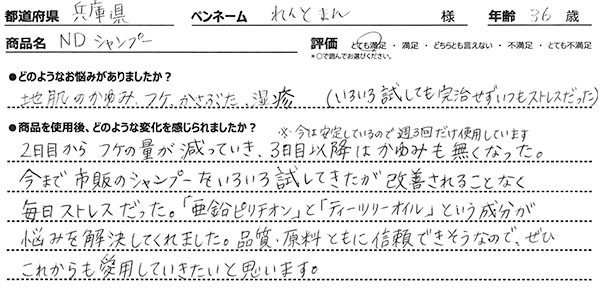 都道府県 兵庫県 ペンネーム れんとまん 様 年齢 36 歳
商品名 NDシャンプー 評価 とても満足・満足・どちらとも言えない・不満足・とても不満足
*○で囲んでお選びください。
●どのようなお悩みがありましたか？
地肌のかゆみ、フケ、かさぶた、湿疹 (いろいろ試しても完治せずいつもストレスだった)
●商品を使用後、どのような変化を感じられましたか？
※今は安定しているので週3回だけ使用しています
2日目からフケの量が減っていき、3日目以降はかゆみも無くなった。
今まで市販のシャンプーをいろいろ試してきたが改善されることなく
毎日ストレスだった。「亜鉛ピリチオン」と「ティーツリーオイル」という成分が
悩みを解決してくれました。品質・原料ともに信頼できそうなので、ぜひ
これからも愛用していきたいと思います。